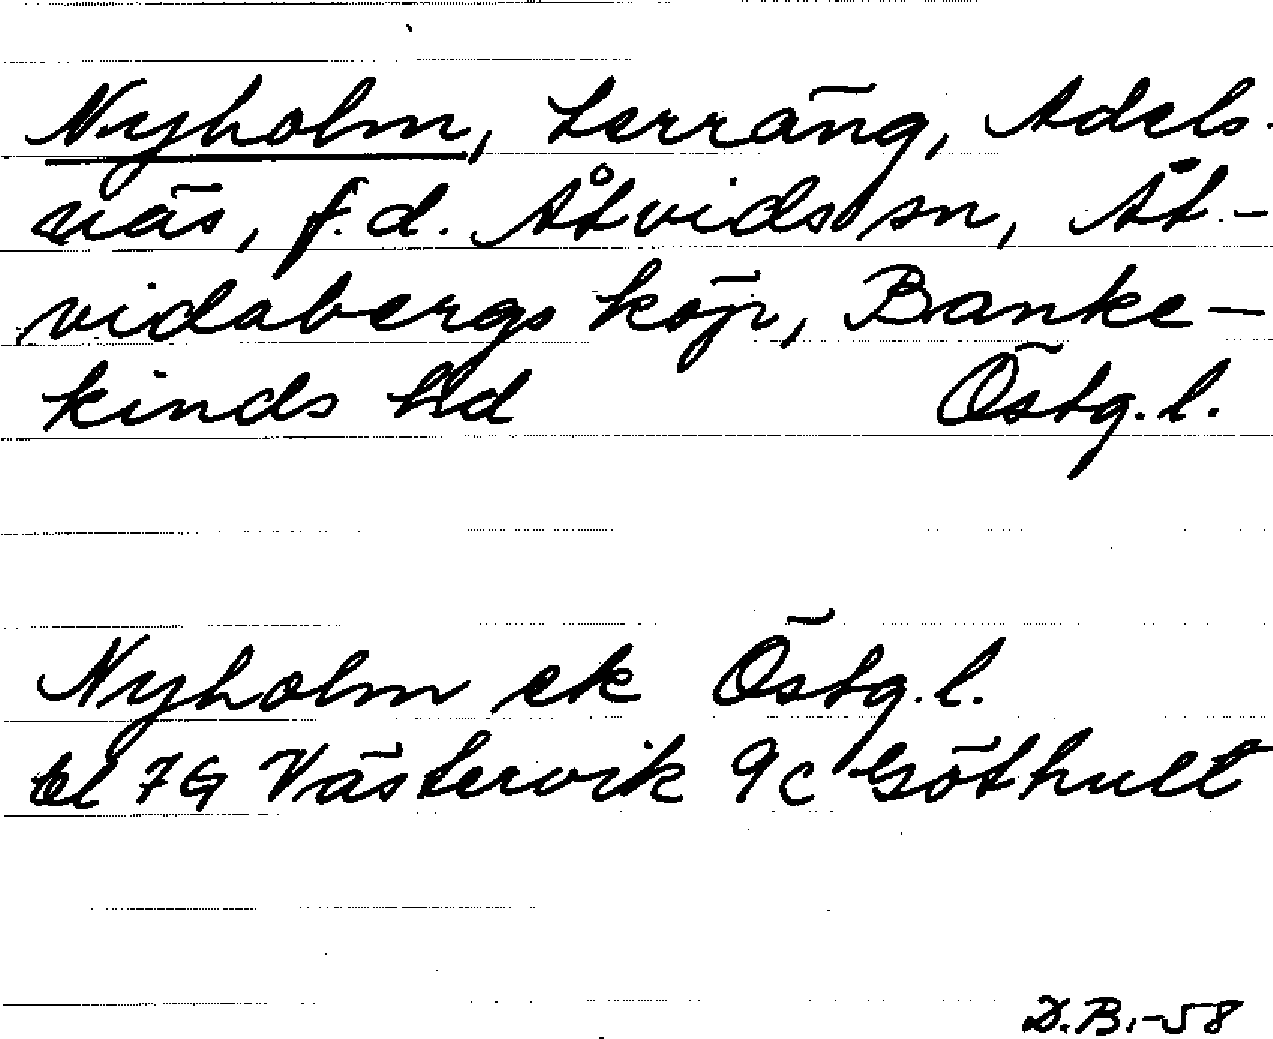 Nyholm, Terräng, Adels-
näs, f.d. Åtvids sn, Åt-
vidabergs köp, Banke-
kinds hd Östg. l.
Nyholm ek Östg. l.
bl 7G Västervik 9c Göthult
D.B.-58